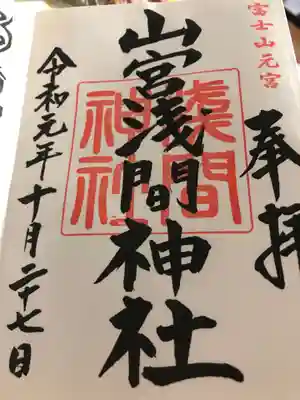 富士山元宮
奉拝
山宮浅間神社
浅間
神社
令和元年十月二十七日